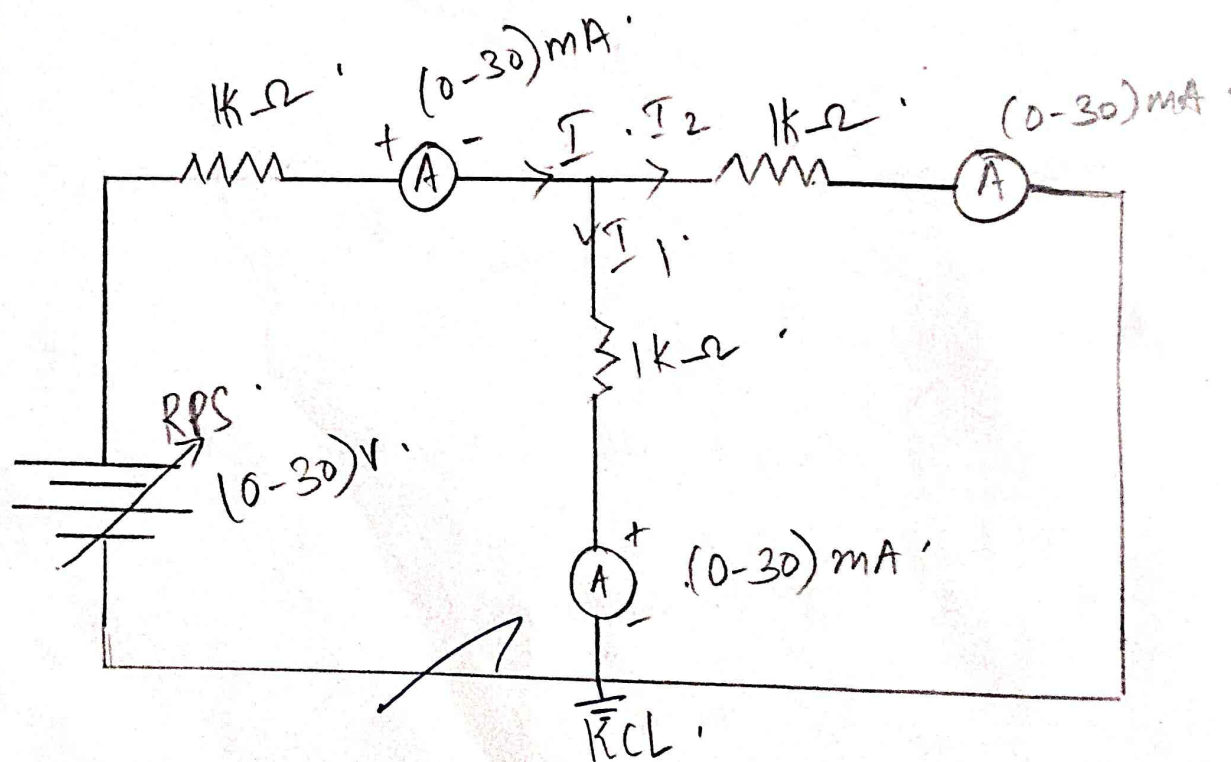 1KΩ
(0-30)mA
+ A -
I
I2
1KΩ
(0-30)mA
A
I1
1KΩ
RPS
(0-30)V
+
A
-
(0-30)mA
KCL